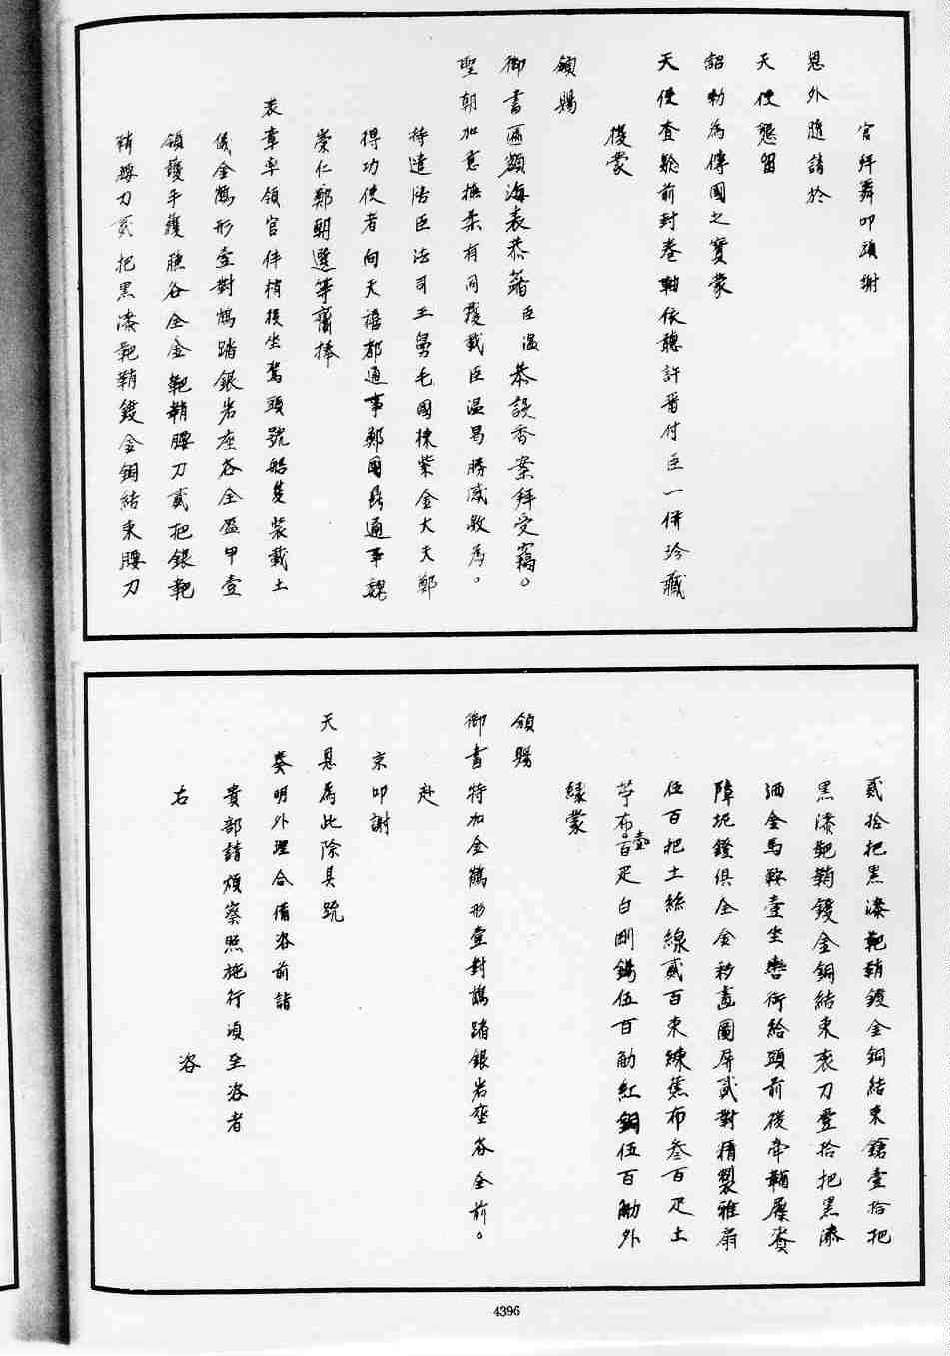 官拜舞叩頭謝
恩外隨請於
天使懇留
詔勅為傳國之寳蒙
天使査驗前封卷軸依聽許畱付臣一併珍藏
復蒙
頒賜
御書匾額海表恭藩臣温恭設香案拜受竊。
聖朝加意撫柔有同覆載臣温曷勝感激為。
特遣法臣法司王舅毛國棟紫金大夫鄭
得功使者向天禧都通事鄭國彛通事魏
崇仁鄭朝選等齎捧
表章率領官伴梢後坐駕頭號船隻裝載土
儀金鶴形壹對鶴踏銀岩座各全盔甲壹
領護手護臁各全金靶鞘腰刀貳把銀靶
鞘腰刀貳把黒漆靶鞘鍍金銅結束腰刀
貳拾把黒漆靶鞘鍍金銅結束鎗壹拾把
黒漆靶鞘鍍金銅結束衮刀壹拾把黒漆
洒金馬鞍壹坐轡銜給頭前後牽鞘屧瀆
障坭鐙俱全金彩畫圍屏貳對精製雅扇
伍百把土絲線貳百束練蕉布叁百疋土
苧布壹百疋白剛錫伍百觔紅銅伍百觔外
緣蒙
頒賜
御書特加金鶴形壹對鶴踏銀岩座各全前。
赴
京叩謝
天恩為此除具䟽
奏明外理合備咨前詣
貴部請煩察照施行湏至咨者
右 咨
4396